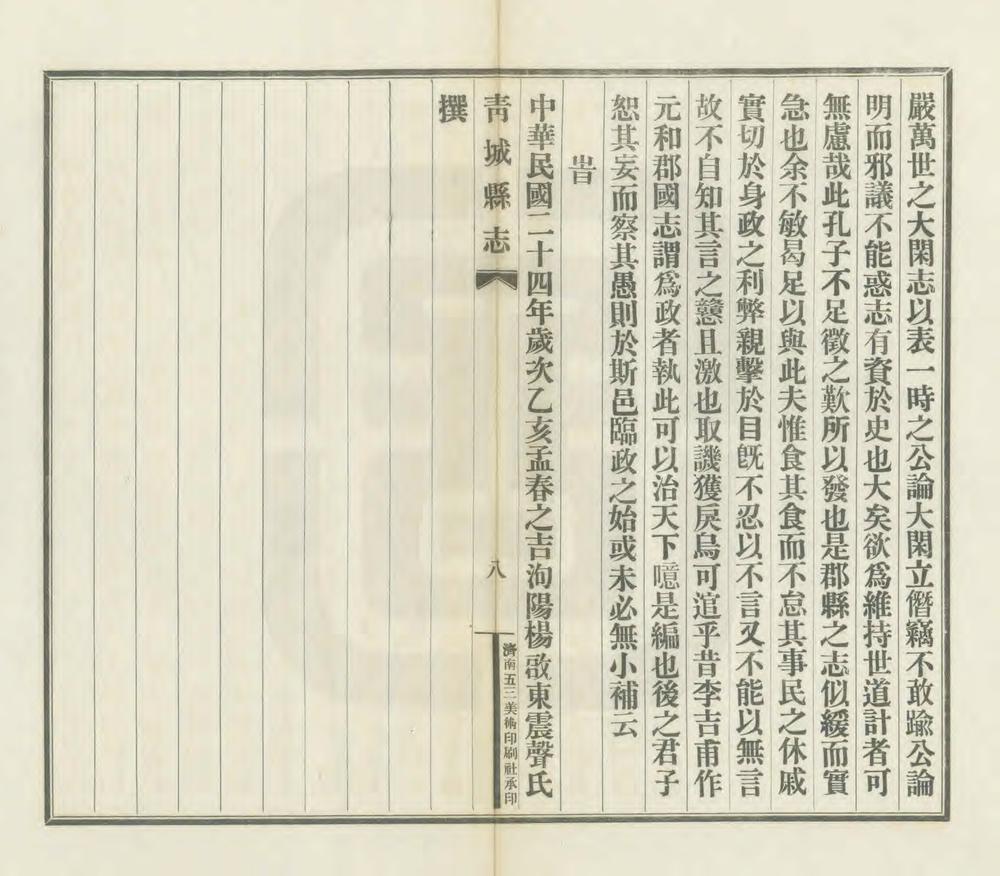 嚴萬世之大閑志以表一時之公論大閑立僭竊不敢踰公論
明而邪議不能惑志有資於史也大矣欲爲維持世道計者可
無慮哉此孔子不足徵之歎所以發也是郡縣之志似緩而實
急也余不敏曷足以與此夫惟食其食而不怠其事民之休戚
實切於身政之利弊親擊於目旣不忍以不言又不能以無言
故不自知其言之戇且激也取譏獲戾烏可逭乎昔李吉甫作
元和郡國志謂爲政者執此可以治天下噫是編也後之君子
恕其妄而察其愚則於斯邑臨政之始或未必無小補云
旹
中華民國二十四年歲次乙亥孟春之吉洵陽楊啟東震聲氏
青城縣志
八
濟南五三美術印刷社承印
撰